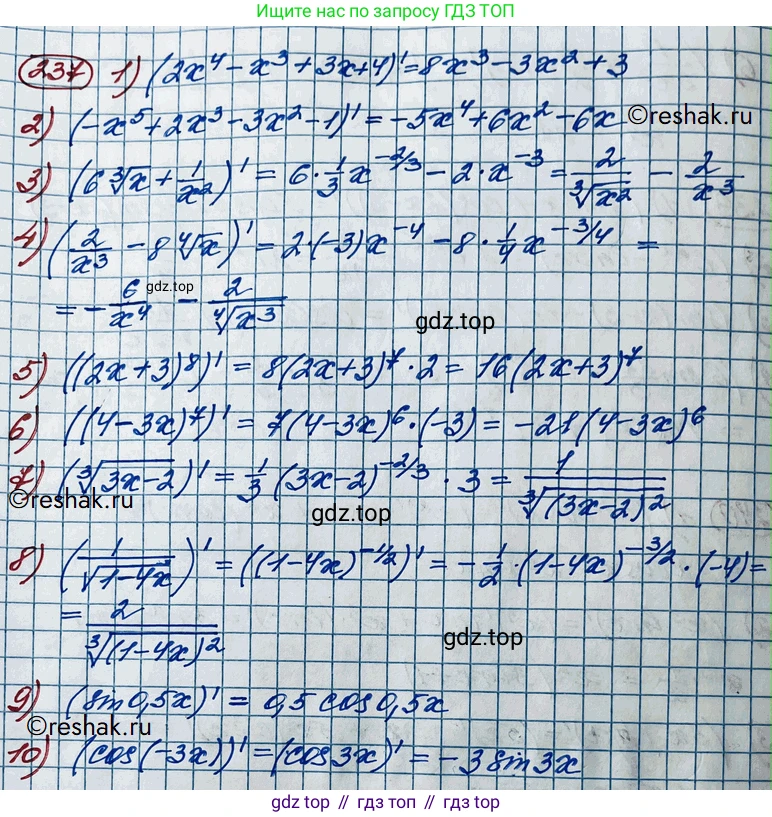 Ищите нас по запросу ГДЗ ТОП
237 1) (2x⁴ - x³ + 3x+4)' = 8x³ - 3x² + 3
2) (-x⁵ + 2x³ - 3x² - 1)' = -5x⁴ + 6x² - 6x
©reshak.ru
3) (6∛x + 1/x²)' = 6 · 1/3 x^(-2/3) - 2 · x^(-3) = 2/∛(x²) - 2/x³
4) (2/x³ - 8∜x)' = 2 · (-3)x^(-4) - 8 · 1/4 x^(-3/4) =
= -6/x⁴ - 2/∜(x³)
gdz.top
gdz.top
5) ((2x+3)⁸)' = 8(2x+3)⁷ · 2 = 16(2x+3)⁷
6) ((4-3x)⁷)' = 7(4-3x)⁶ · (-3) = -21(4-3x)⁶
7) (∛(3x-2))' = 1/3 (3x-2)^(-2/3) · 3 = 1/∛((3x-2)²)
©reshak.ru
gdz.top
8) (1/√(1-4x))' = ((1-4x)^(-1/2))' = -1/2 · (1-4x)^(-3/2) · (-4) =
= 2/∛((1-4x)²)
gdz.top
9) (sin 0,5x)' = 0,5 cos 0,5x
©reshak.ru
10) (cos(-3x))' = (cos 3x)' = -3 sin 3x
©reshak.ru
gdz top // гдз топ // gdz.top